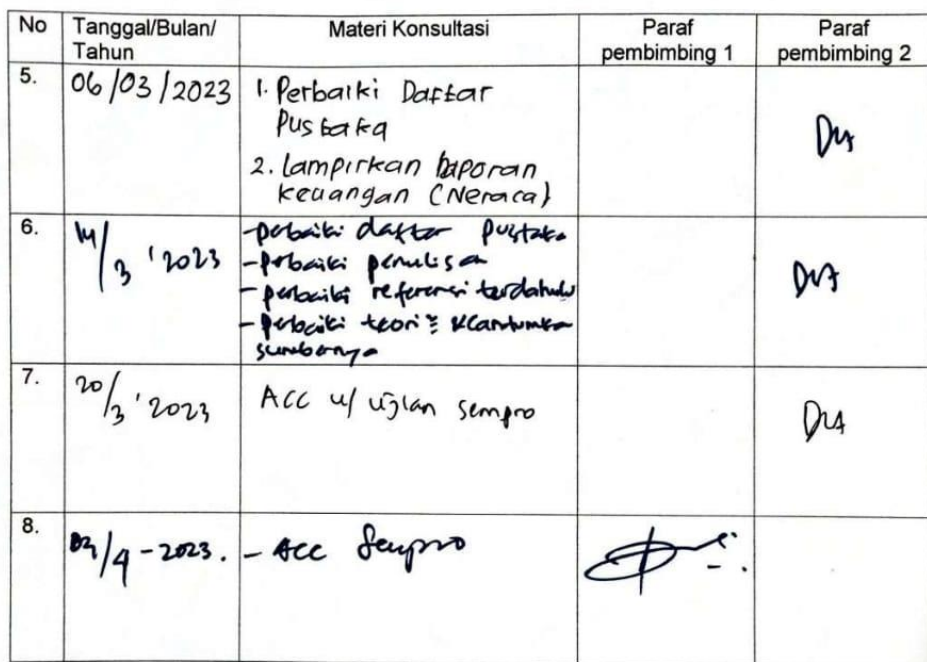 No Tanggal/Bulan/ Materi Konsultasi Paraf Paraf
Tahun pembimbing 1 pembimbing 2
5. 06/03/2023 1. Perbaiki Daftar
Pustaka
2. Lampirkan laporan
keuangan (Neraca)
6. 14/3 '2023 - perbaiki daftar pustaka
- perbaiki penulisan
- perbaiki referensi terdahulu
- perbaiki teori
sumbernya
7. 20/3 '2023 ACC u/ ujian sempro
8. /4 - 2023. - Acc Sempro